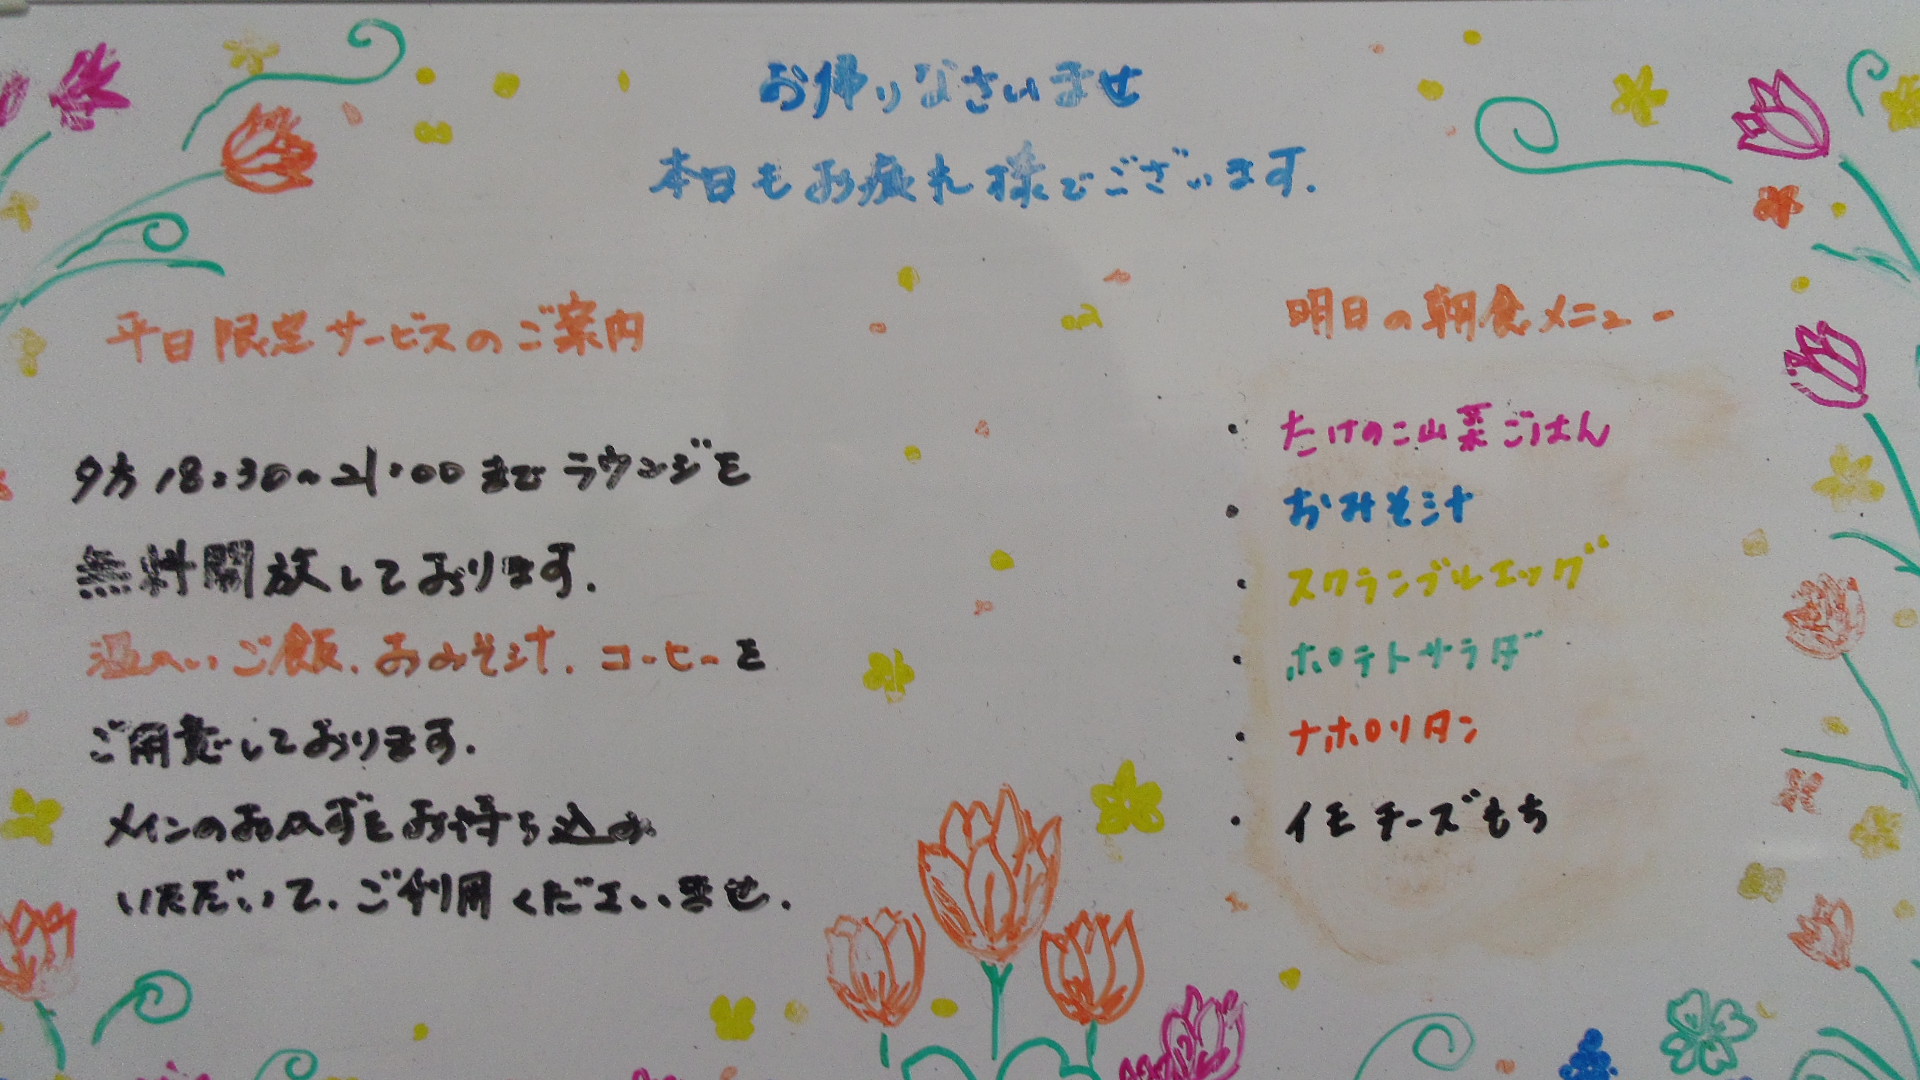 お帰りなさいませ
本日もお疲れ様でございます.
平日限定サービスのご案内
夕方18:30~21:00までラウンジを
無料開放しております.
温かいご飯.おみそ汁.コーヒーを
ご用意しております.
メインのおかずをお持ち込み
いただいて.ご利用くださいませ.
明日の朝食メニュー
・たけのこ山菜ごはん
・おみそ汁
・スクランブルエッグ
・ポテトサラダ
・ナポリタン
・イモチーズもち